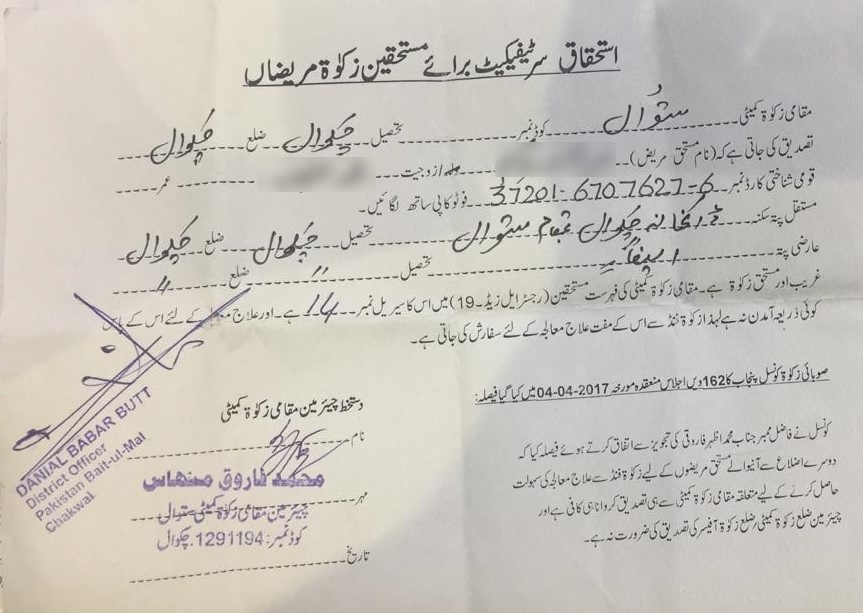 استحقاق سرٹیفکیٹ برائے مستحقین زکوٰۃ مریضاں
مقامی زکوٰۃ کمیٹی سٹوال کوڈ نمبر تحصیل چکوال ضلع چکوال
تصدیق کی جاتی ہے کہ (نام مستحق مریض) ولد/زوجیت عمر
قومی شناختی کارڈ نمبر 37201-6707627-6 فوٹو کاپی ساتھ لگائیں۔
مستقل پتہ سکنہ ڈاکخانہ چکوال بمقام سٹوال تحصیل چکوال ضلع چکوال
عارضی پتہ ایضاً تحصیل " ضلع "
غریب اور مستحق زکوٰۃ ہے۔ مقامی زکوٰۃ کمیٹی کی فہرست مستحقین (رجسٹر ایل زیڈ۔19) میں اس کا سیریل نمبر 14 ہے۔ اور علاج معالجہ کے لئے اس کے پاس
کوئی ذریعہ آمدن نہ ہے لہذا زکوٰۃ فنڈ سے اس کے مفت علاج معالجہ کے لئے سفارش کی جاتی ہے۔
صوبائی زکوٰۃ کونسل پنجاب کا 162 ویں اجلاس منعقدہ مورخہ 04-04-2017 میں کیا گیا فیصلہ:
کونسل نے فاضل ممبر جناب محمد اظہر فاروقی کی تجویز سے اتفاق کرتے ہوئے فیصلہ کیا کہ
دوسرے اضلاع سے آنیوالے مستحق مریضوں کے لیے زکوٰۃ فنڈ سے علاج معالجہ کی سہولت
حاصل کرنے کے لیے متعلقہ مقامی زکوٰۃ کمیٹی سے ہی تصدیق کروانا ہی کافی ہے اور
چیئرمین ضلع زکوٰۃ کمیٹی/ضلع زکوٰۃ آفیسر کی تصدیق کی ضرورت نہ ہے۔
دستخط چیئرمین مقامی زکوٰۃ کمیٹی
نام
محمد فاروق منہاس
مہر چیئرمین مقامی زکوٰۃ کمیٹی سٹوال
کوڈ نمبر: 1291194. چکوال
تاریخ
DANIAL BABAR BUTT
District Officer
Pakistan Bait-ul-Mal
Chakwal